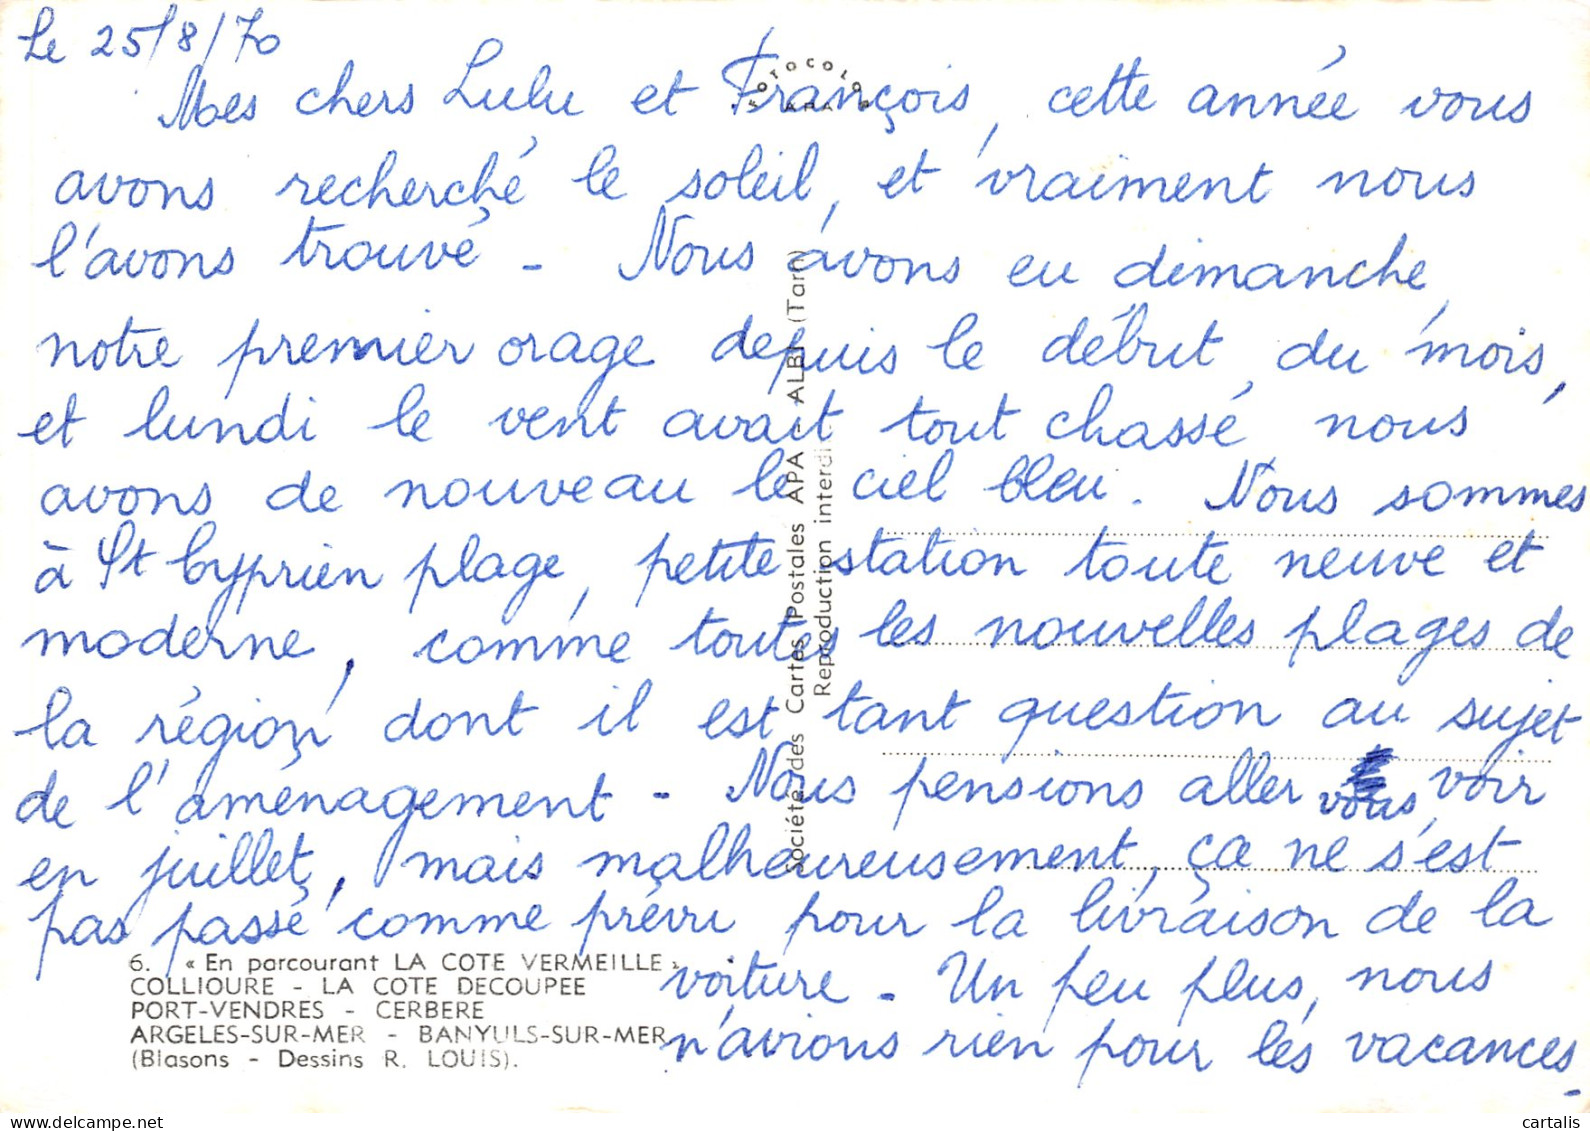 Le 25/8/70
Mes chers Lulu et François, cette année vous
avons recherché le soleil, et vraiment nous
l'avons trouvé - Nous avons eu dimanche,
notre premier orage depuis le début du mois,
et lundi le vent avait tout chassé, nous
avons de nouveau le ciel bleu. Nous sommes
à St Cyprien plage, petite station toute neuve et
moderne, comme toutes les nouvelles plages de
la région, dont il est tant question au sujet
de l'aménagement - Nous pensions aller vous voir
en juillet, mais malheureusement, ça ne s'est
pas passé comme prévu pour la livraison de la
voiture - Un peu plus, nous
n'avions rien pour les vacances -
6. « En parcourant LA COTE VERMEILLE »
COLLIOURE - LA COTE DECOUPEE
PORT-VENDRES - CERBERE
ARGELES-SUR-MER - BANYULS-SUR-MER
(Blasons - Dessins R. LOUIS).
FOTOCOLOR
APA
Société des Cartes Postales APA - ALBI (Tarn)
Reproduction interdite
cartalis